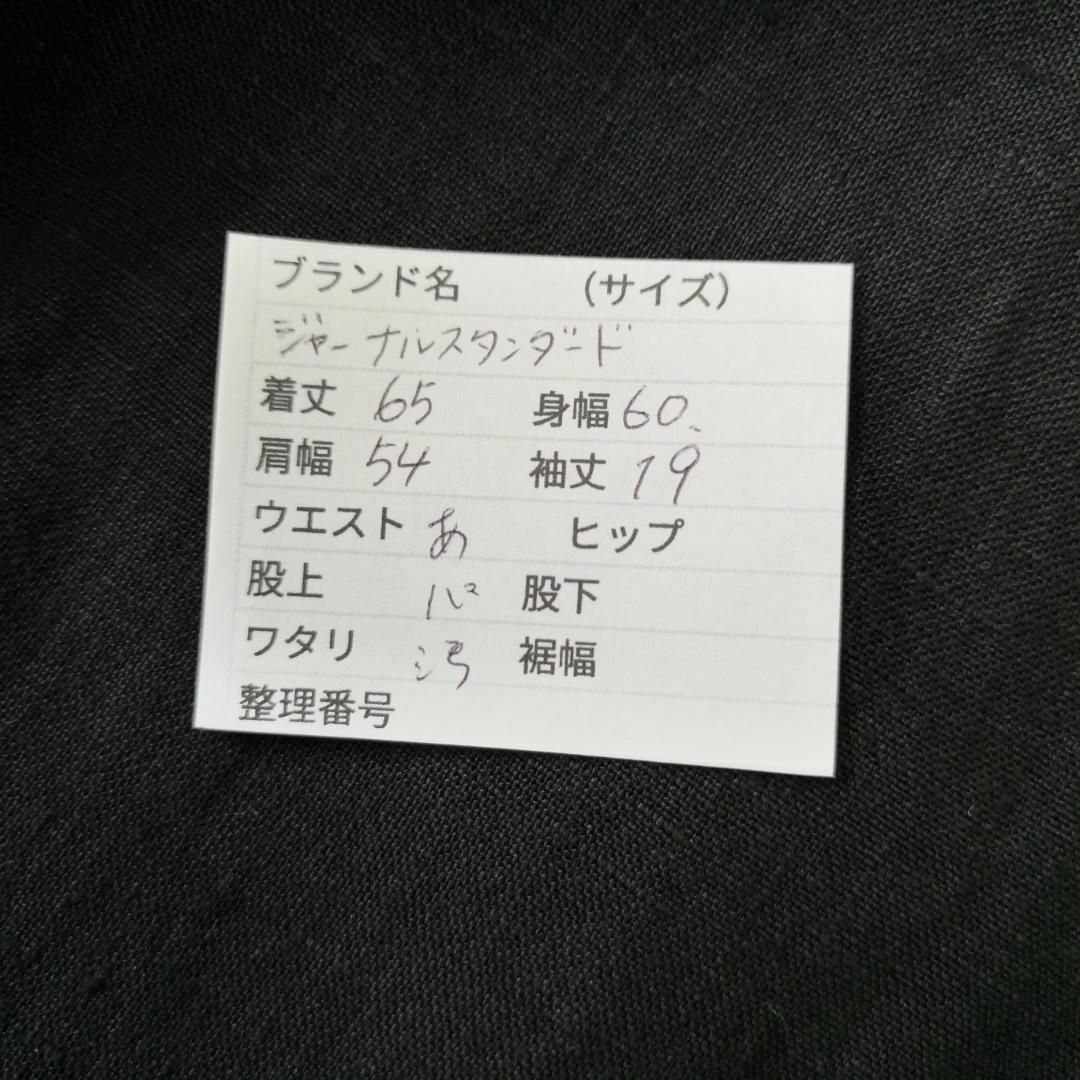 ブランド名 （サイズ）
ジャーナルスタンダード
着丈 65 身幅 60.
肩幅 54 袖丈 19
ウエスト あ ヒップ
股上 パ 股下
ワタリ 裾幅
整理番号